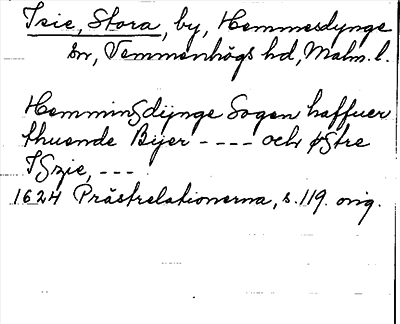 Isie, Stora, by, Hemmesdynge
sn, Vemmenhögs hd, Malm. l.
Hemmingdijnge Sogen haffuer
thuende Bijer - - - - och østre
ISzie, - - -
1624 Prästrelationerna, s. 119. orig.